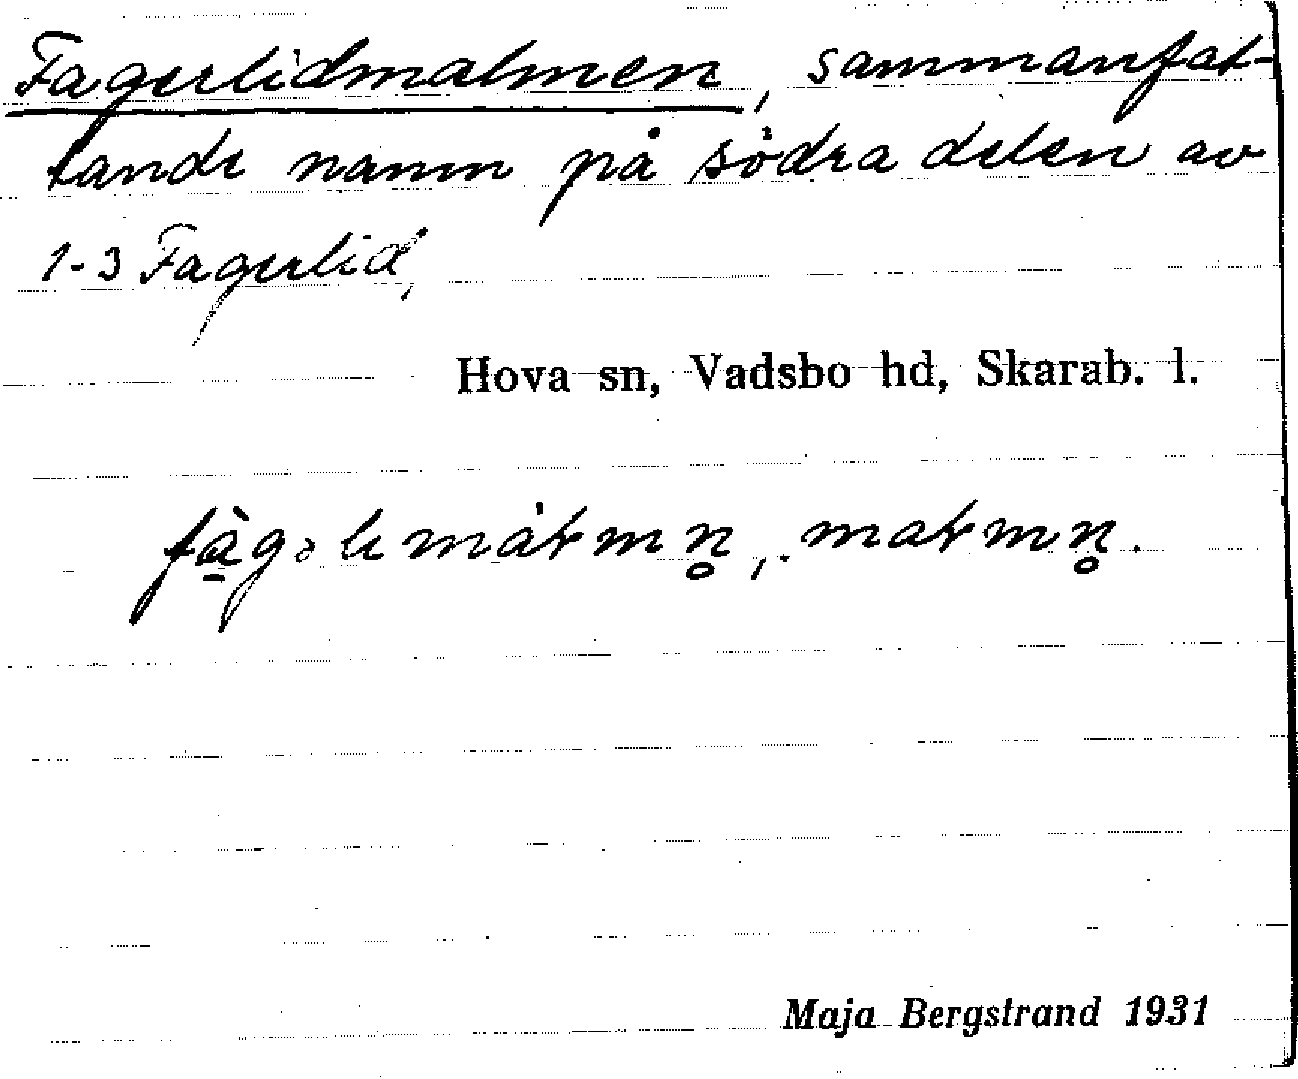 Fagerlidmalmen, sammanfat-
tande namn på södra delen av
1-3 Fagerlid,
Hova sn, Vadsbo hd, Skarab. l.
Maja Bergstrand 1931